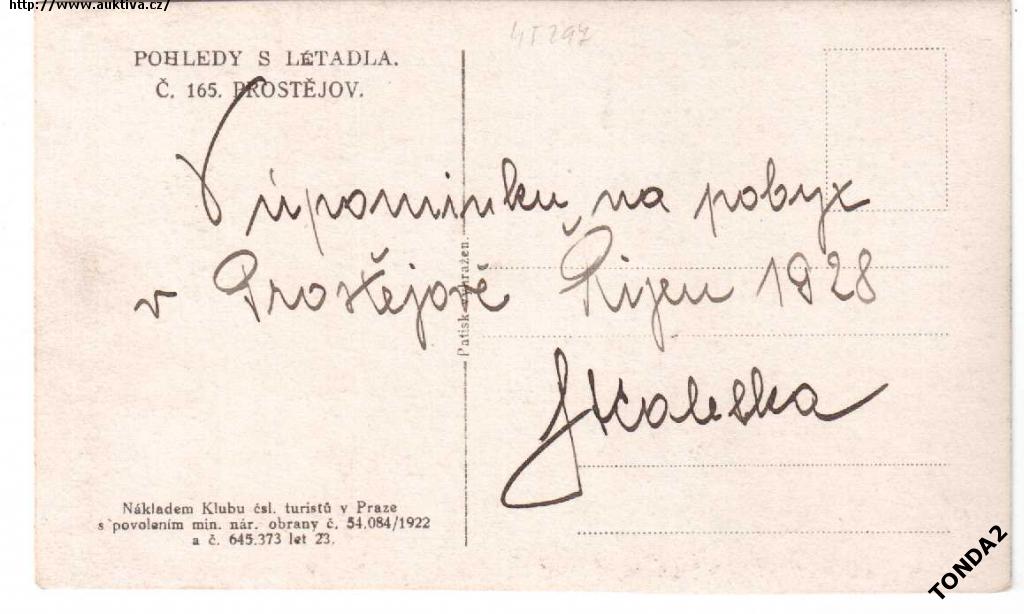 http://www.auktiva.cz/
POHLEDY S LÉTADLA.
Č. 165. PROSTĚJOV.
V úpomínku na pobyt
v Prostějově Říjen 1928
Patisk vyhražen.
Nákladem Klubu čsl. turistů v Praze
s povolením min. nár. obrany č. 54.084/1922
a č. 645.373 let 23.
TONDA2